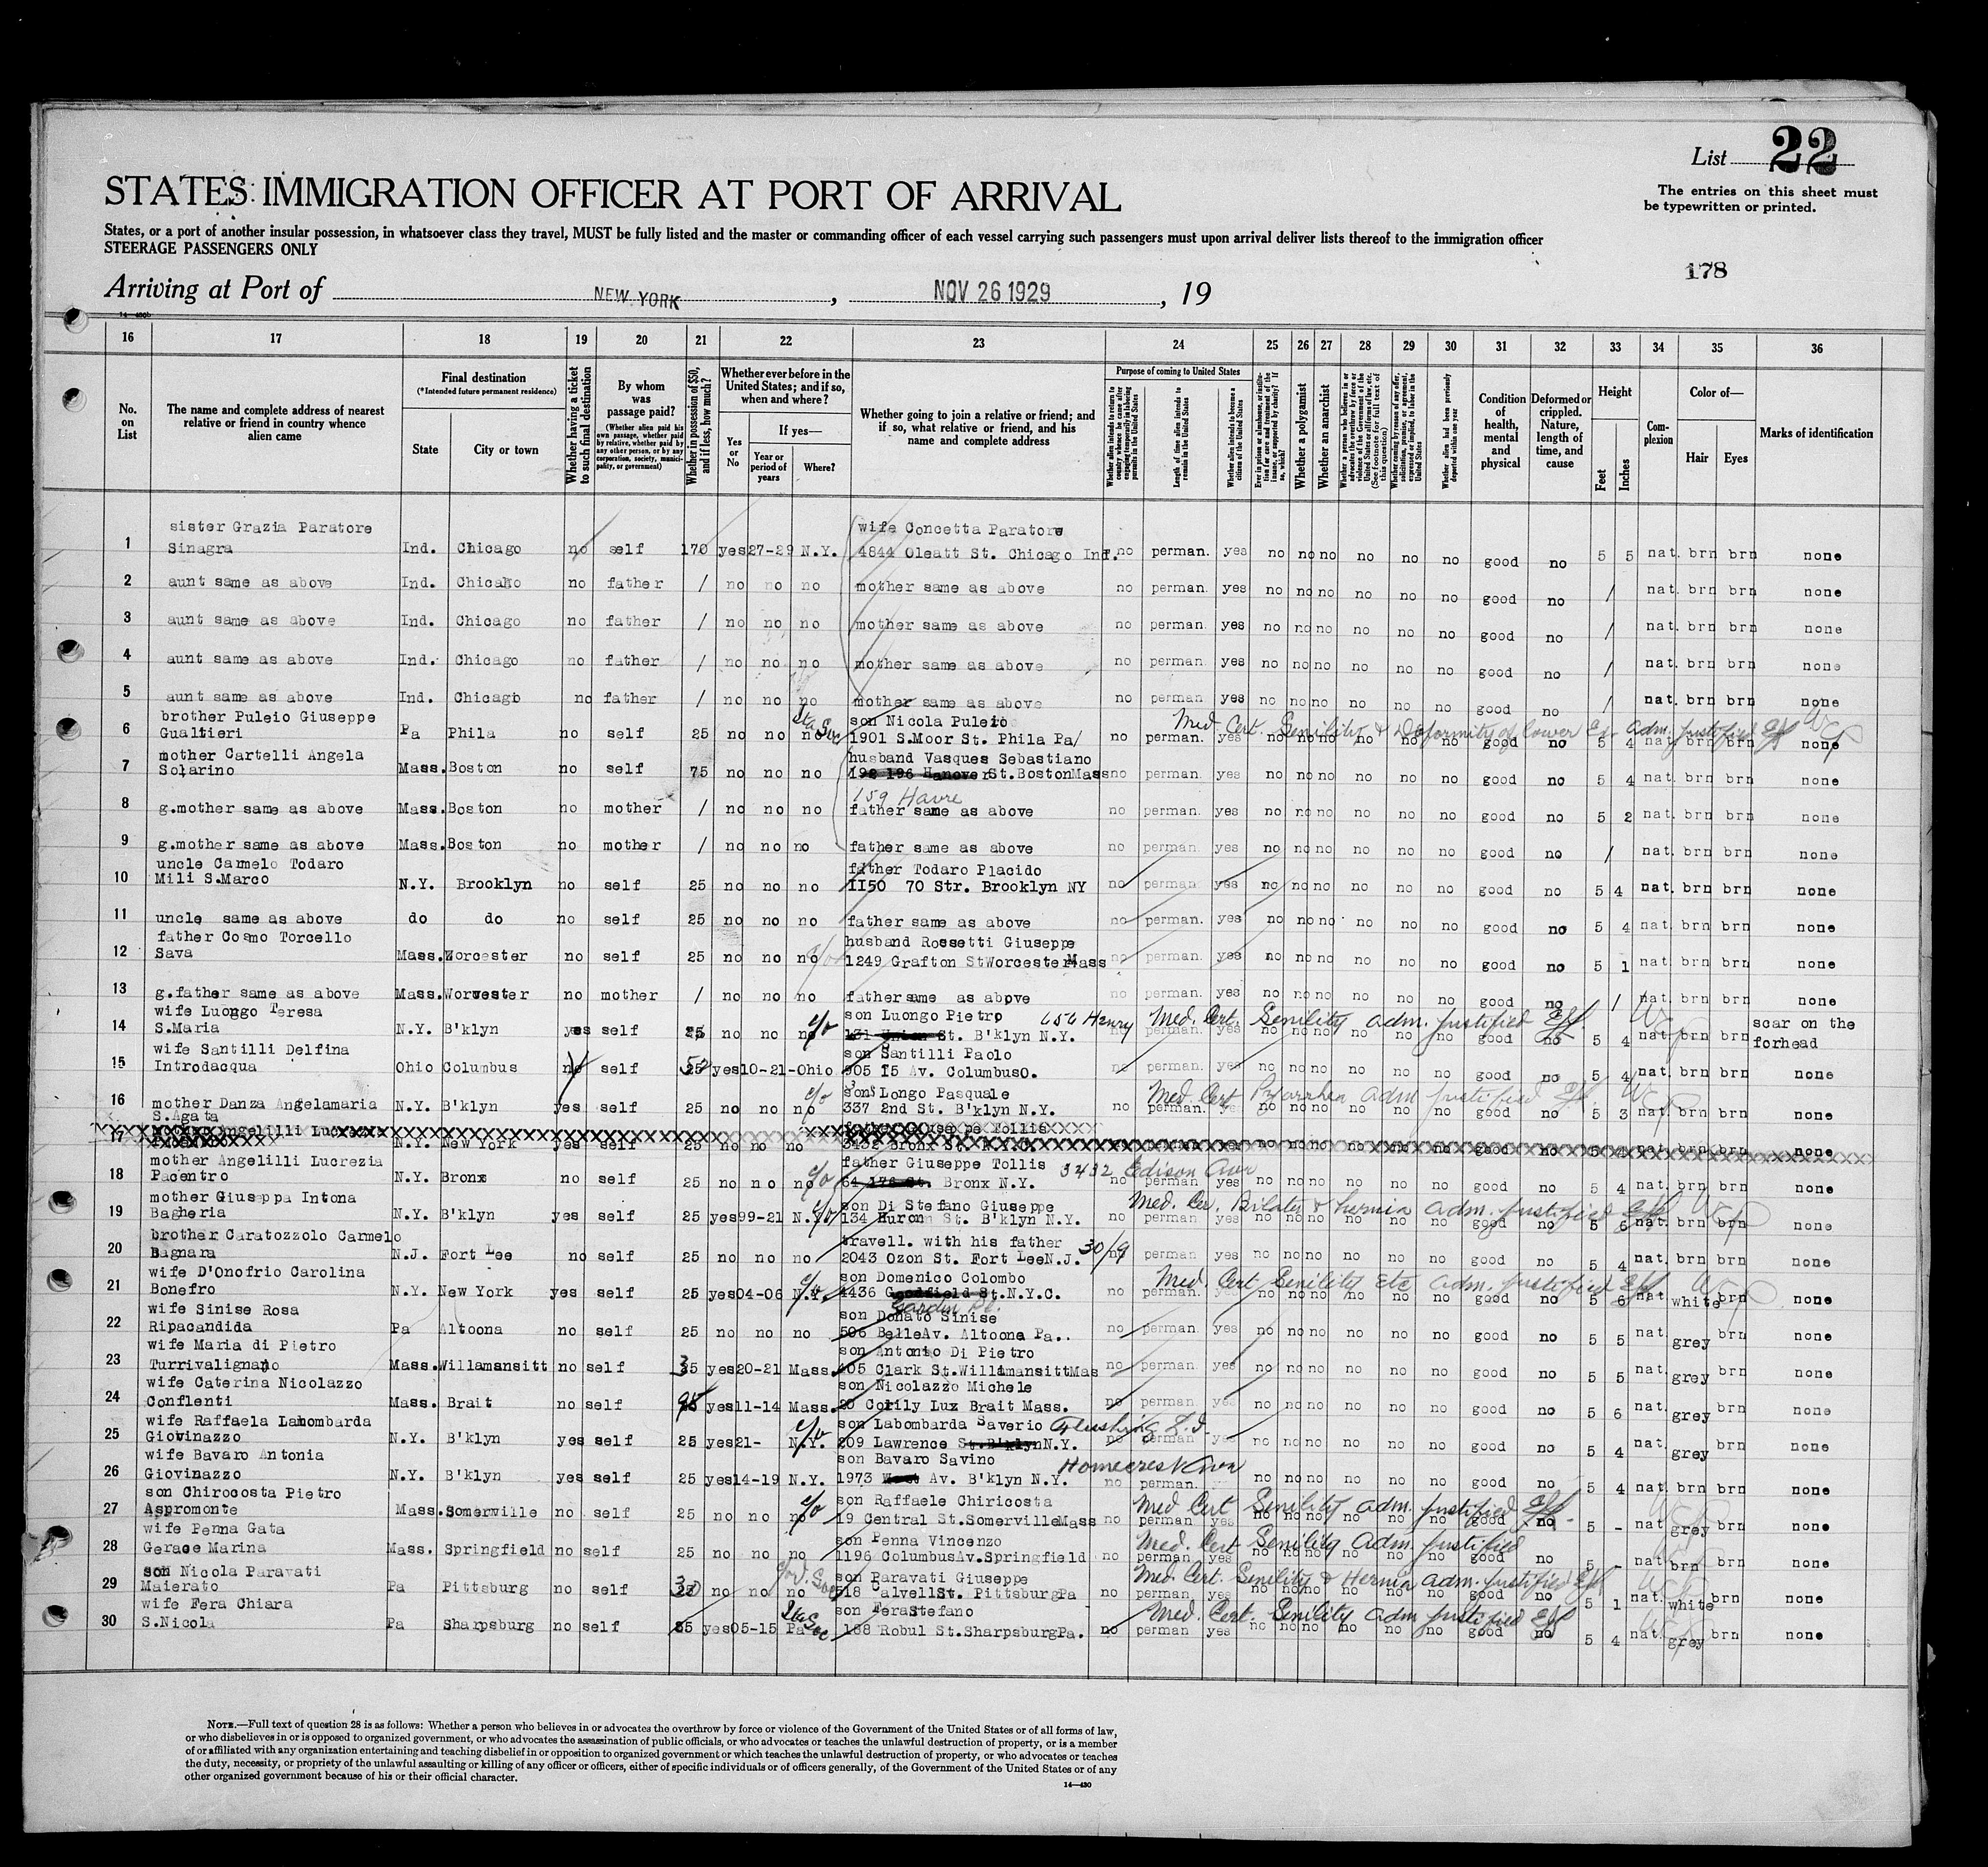 List 22
The entries on this sheet must
be typewritten or printed.
STATES IMMIGRATION OFFICER AT PORT OF ARRIVAL
States, or a port of another insular possession, in whatsoever class they travel, MUST be fully listed and the master or commanding officer of each vessel carrying such passengers must upon arrival deliver lists thereof to the immigration officer
STEERAGE PASSENGERS ONLY
178
Arriving at Port of NEW YORK, NOV 26 1929, 19
16 17 18 19 20 21 22 23 24 25 26 27 28 29 30 31 32 33 34 35 36
No. on List
The name and complete address of nearest relative or friend in country whence alien came
Final destination
(*Intended future permanent residence)
State
City or town
Whether having a ticket to such final destination
By whom was passage paid?
(Whether alien paid his own passage, whether paid by relative, whether paid by any other person, or by any corporation, society, municipality, or government)
Whether in possession of $50, and if less, how much?
Whether ever before in the United States; and if so, when and where?
Yes or No
If yes—
Year or period of years
Where?
Whether going to join a relative or friend; and if so, what relative or friend, and his name and complete address
Purpose of coming to United States
Length of time alien intends to remain in the United States
Whether alien intends to become a citizen of the United States
Whether a polygamist
Whether an anarchist
Condition of health, mental and physical
Deformed or crippled. Nature, length of time, and cause
Height
Feet
Inches
Complexion
Color of—
Hair
Eyes
Marks of identification
sister Grazia Paratore wife Concetta Paratore
1 Sinagra Ind. Chicago no self 170 yes 27-29 N.Y. 4844 Oleatt St. Chicago Ind. no perman. yes no no no no no no good no 5 5 nat. brn brn none
2 aunt same as above Ind. Chicago no father / no no no mother same as above no perman. yes no no no no no no good no / nat. brn brn none
3 aunt same as above Ind. Chicago no father / no no no mother same as above no perman. yes no no no no no no good no / nat. brn brn none
4 aunt same as above Ind. Chicago no father / no no no mother same as above no perman. yes no no no no no no good no / nat. brn brn none
5 aunt same as above Ind. Chicago no father / no no no mother same as above no perman. yes no no no no no no good no / nat. brn brn none
brother Puleio Giuseppe son Nicola Puleio Med. Cert. Senility & Deformity of lower Ex. adm. justified
6 Gualtieri Pa Phila no self 25 no no no 1901 S.Moor St. Phila Pa/ no perman. yes no no no no no no good no 5 4 nat brn brn none
mother Cartelli Angela husband Vasques Sebastiano
7 Solarino Mass. Boston no self 75 no no no 192 196 Hanover St.Boston Mass no perman. yes no no no no no no good no 5 4 nat. brn brn none
159 Havre
8 g.mother same as above Mass. Boston no mother / no no no father same as above no perman. yes no no no no no no good no 5 2 nat. brn brn none
9 g.mother same as above Mass. Boston no mother / no no no father same as above no perman. yes no no no no no no good no / nat. brn brn none
uncle Carmelo Todaro father Todaro Placido
10 Mili S.Marco N.Y. Brooklyn no self 25 no no no 1150 70 Str. Brooklyn NY no perman. yes no no no no no no good no 5 4 nat. brn brn none
11 uncle same as above do do no self 25 no no no father same as above no perman. yes no no no no no no good no 5 4 nat. brn brn none
father Cosmo Torcello husband Rossetti Giuseppe
12 Sava Mass. Worcester no self 25 no no no 1249 Grafton St Worcester Mass no perman. yes no no no no no no good no 5 1 nat. brn brn none
13 g.father same as above Mass. Worvester no mother / no no no father same as above no perman. yes no no no no no no good no / nat. brn brn none
wife Luongo Teresa son Luongo Pietro 656 Henry Med. Cert. Senility adm. justified
14 S.Maria N.Y. B'klyn yes self 25 no no no c/o 131 Union St. B'klyn N.Y. perman. yes no no no no no no good no 5 4 nat. brn brn scar on the forhead
wife Santilli Delfina son Santilli Paolo
15 Introdacqua Ohio Columbus no self 52 yes 10-21-Ohio 905 15 Av. Columbus O. no perman. yes no no no no no no good no 5 4 nat. brn brn none
sons Longo Pasquale Med. Cert Pyorrhea adm justified
16 mother Danza Angelamaria N.Y. B'klyn yes self 25 no no no c/o 337 2nd St. B'klyn N.Y. no perman. no no no no no no good no 5 3 nat. brn brn none
S.Agata
Angelilli Lucrezia father Giuseppe Tollis
17 N.Y. New York yes self 25 no no no 3432 Bronx St. N.Y.C. no no no no good no 5 4 nat. brn brn none
mother Angelilli Lucrezia father Giuseppe Tollis 3432 Edison Ave
18 Pacentro N.Y. Bronx no self 25 no no no c/o 64 176 St. Bronx N.Y. no perman yes no no no no no no good no 5 4 nat. brn brn none
mother Giuseppa Intona son Di Stefano Giuseppe Med. Cer. Bilater & hernia adm. justified
19 Bagheria N.Y. B'klyn yes self 25 yes 99-21 N.Y. c/o 134 Huron St. B'klyn N.Y. no perman yes no no no no no no good no 5 6 nat. brn brn none
brother Caratozzolo Carmelo travell. with his father
20 Bagnara N.J. Fort Lee no self 25 no no no 2043 Ozon St. Fort Lee N.J. 30/9 no perman yes no no no no no no good no 5 4 nat. brn brn none
wife D'Onofrio Carolina son Domenico Colombo Med. Cert Senility Etc adm. justified
21 Bonefro N.Y. New York yes self 25 yes 04-06 N.Y. c/o 1436 Goodfield St.N.Y.C. no perman. no no no no no no good no 5 6 nat white none
wife Sinise Rosa son Donato Sinise
22 Ripacandida Pa Altoona no self 25 no no no 506 Belle Av. Altoona Pa.. no perman yes no no no no no no good no 5 5 nat. grey brn none
wife Maria di Pietro son Antonio Di Pietro
23 Turrivalignano Mass. Willamansitt no self 35 yes 20-21 Mass. 405 Clark St.Willimansitt Mas no perman. yes no no no no no no good no 5 5 nat. grey brn none
wife Caterina Nicolazzo son Nicolazzo Michele
24 Conflenti Mass. Brait no self 95 yes 11-14 Mass. 20 Corily Lux Brait Mass. no perman. yes no no no no no no good no 5 6 nat. grey brn none
wife Raffaela Labombarda son Labombarda Saverio Flushing L.I.
25 Giovinazzo N.Y. B'klyn yes self 25 yes 21- N.Y. c/o 209 Lawrence St.B'klyn N.Y. no perman yes no no no no no no good no 5 4 nat. grey brn none
wife Bavaro Antonia son Bavaro Savino Homecrest Ave
26 Giovinazzo N.Y. B'klyn yes self 25 yes 14-19 N.Y. 1973 Av. B'klyn N.Y. no perman. no no no no no no good no 5 4 nat. brn brn none
son Chirocosta Pietro son Raffaele Chiricosta Med Cert Senility adm. justified
27 Aspromonte Mass. Somerville no self 25 no no no c/o 19 Central St.Somerville Mass no perman yes no no no no no no good no 5 - nat grey brn none
wife Penna Gata son Penna Vincenzo Med. Cert Senility Adm. justified
28 Gerace Marina Mass. Springfield no self 25 no no no 1196 Columbus Av.Springfield no perman yes no no no no no no good no 5 - nat brn brn none
son Nicola Paravati son Paravati Giuseppe Med Cert. Senility & Hernia adm. justified
29 Maierato Pa Pittsburg no self 30 no no no 518 Calvell St. Pittsburg Pa no perman yes no no no no no no good no 5 1 nat. white brn none
wife Fera Chiara son Fera Stefano Med. Cert. Senility adm justified
30 S.Nicola Pa Sharpsburg no self 35 yes 05-15 Pa 188 Robul St.Sharpsburg Pa. no perman yes no no no no no no good no 5 4 nat. grey brn none
NOTE.—Full text of question 28 is as follows: Whether a person who believes in or advocates the overthrow by force or violence of the Government of the United States or of all forms of law,
or who disbelieves in or is opposed to organized government, or who advocates the assassination of public officials, or who advocates or teaches the unlawful destruction of property, or is a member
of or affiliated with any organization entertaining and teaching disbelief in or opposition to organized government or which teaches the unlawful destruction of property, or who advocates or teaches
the duty, necessity, or propriety of the unlawful assaulting or killing of any officer or officers, either of specific individuals or of officers generally, of the Government of the United States or of any
other organized government because of his or their official character.
14—430